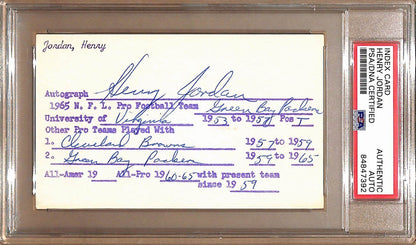 Jordan, Henry
Autograph Henry Jordan
1965 N. F. L. Pro Football Team Green Bay Packers
University of Virginia 1953 to 1956 Pos T
Other Pro Teams Played With
1. Cleveland Browns 1957 to 1959
2. Green Bay Packers 1959 to 1965
All-Amer 19 All-Pro 1960-65 with present team
since 1959
INDEX CARD
HENRY JORDAN
PSA/DNA CERTIFIED
PSA
AUTHENTIC
AUTO
84847392